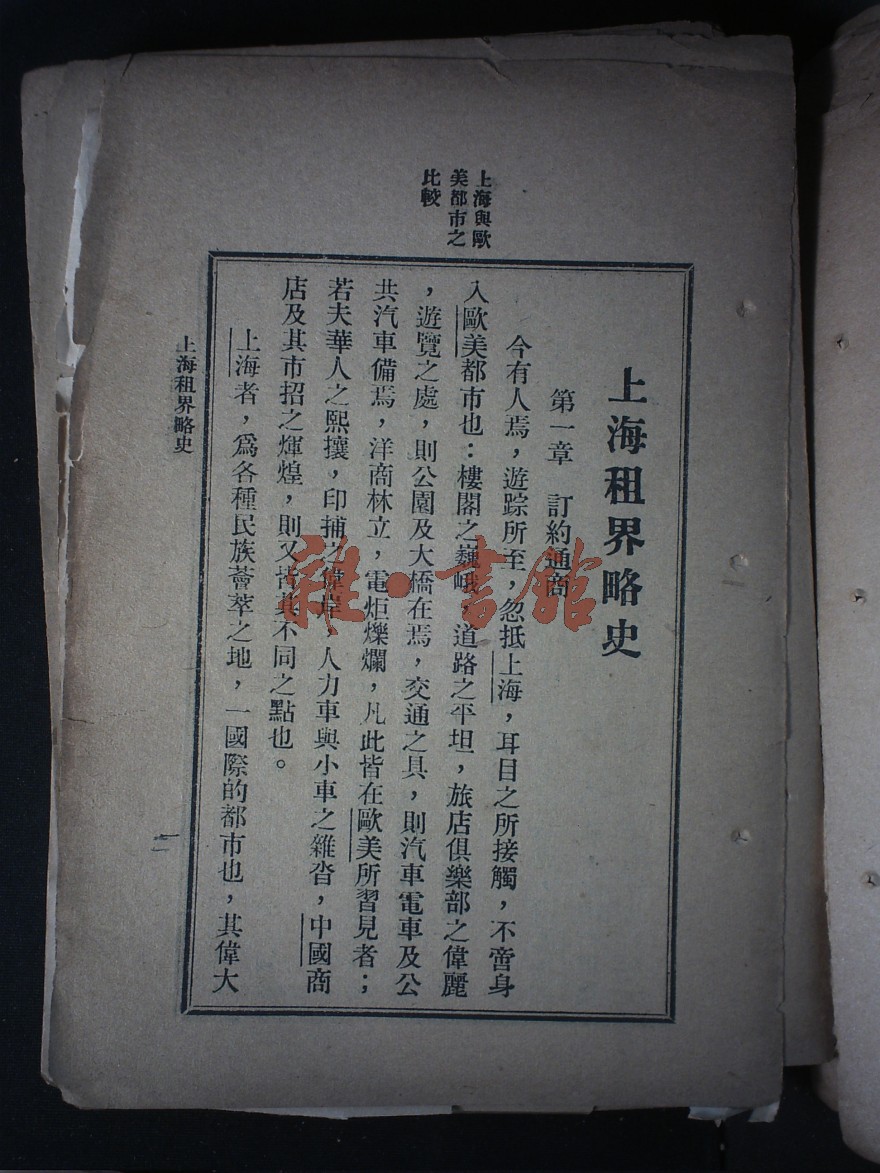 上海與歐
美都市之
比較
上海租界略史
第一章　訂約通商
今有人焉，遊踪所至，忽抵上海，耳目之所接觸，不啻身
入歐美都市也：樓閣之巍峨，道路之平坦，旅店俱樂部之偉麗
，遊覽之處，則公園及大橋在焉，交通之具，則汽車電車及公
共汽車備焉，洋商林立，電炬爍爛，凡此皆在歐美所習見者；
若夫華人之熙攘，印捕之偉岸，人力車與小車之雜沓，中國商
店及其市招之煇煌，則又皆其不同之點也。
上海者，爲各種民族薈萃之地，一國際的都市也，其偉大
上海租界略史
一
雜·書館